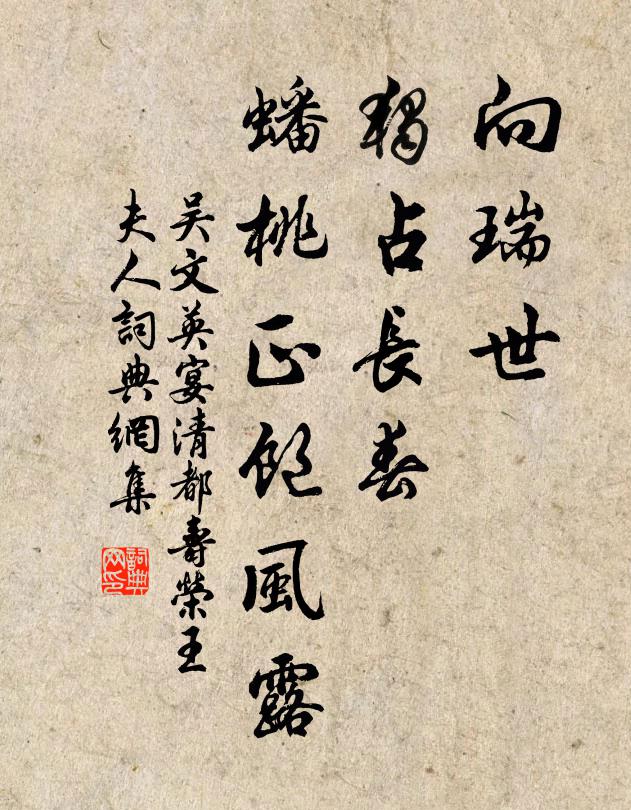 向瑞世
獨占長春
蟠桃正飽風露
吴文英宴清都壽榮王
夫人詞典網集
詞典
网印